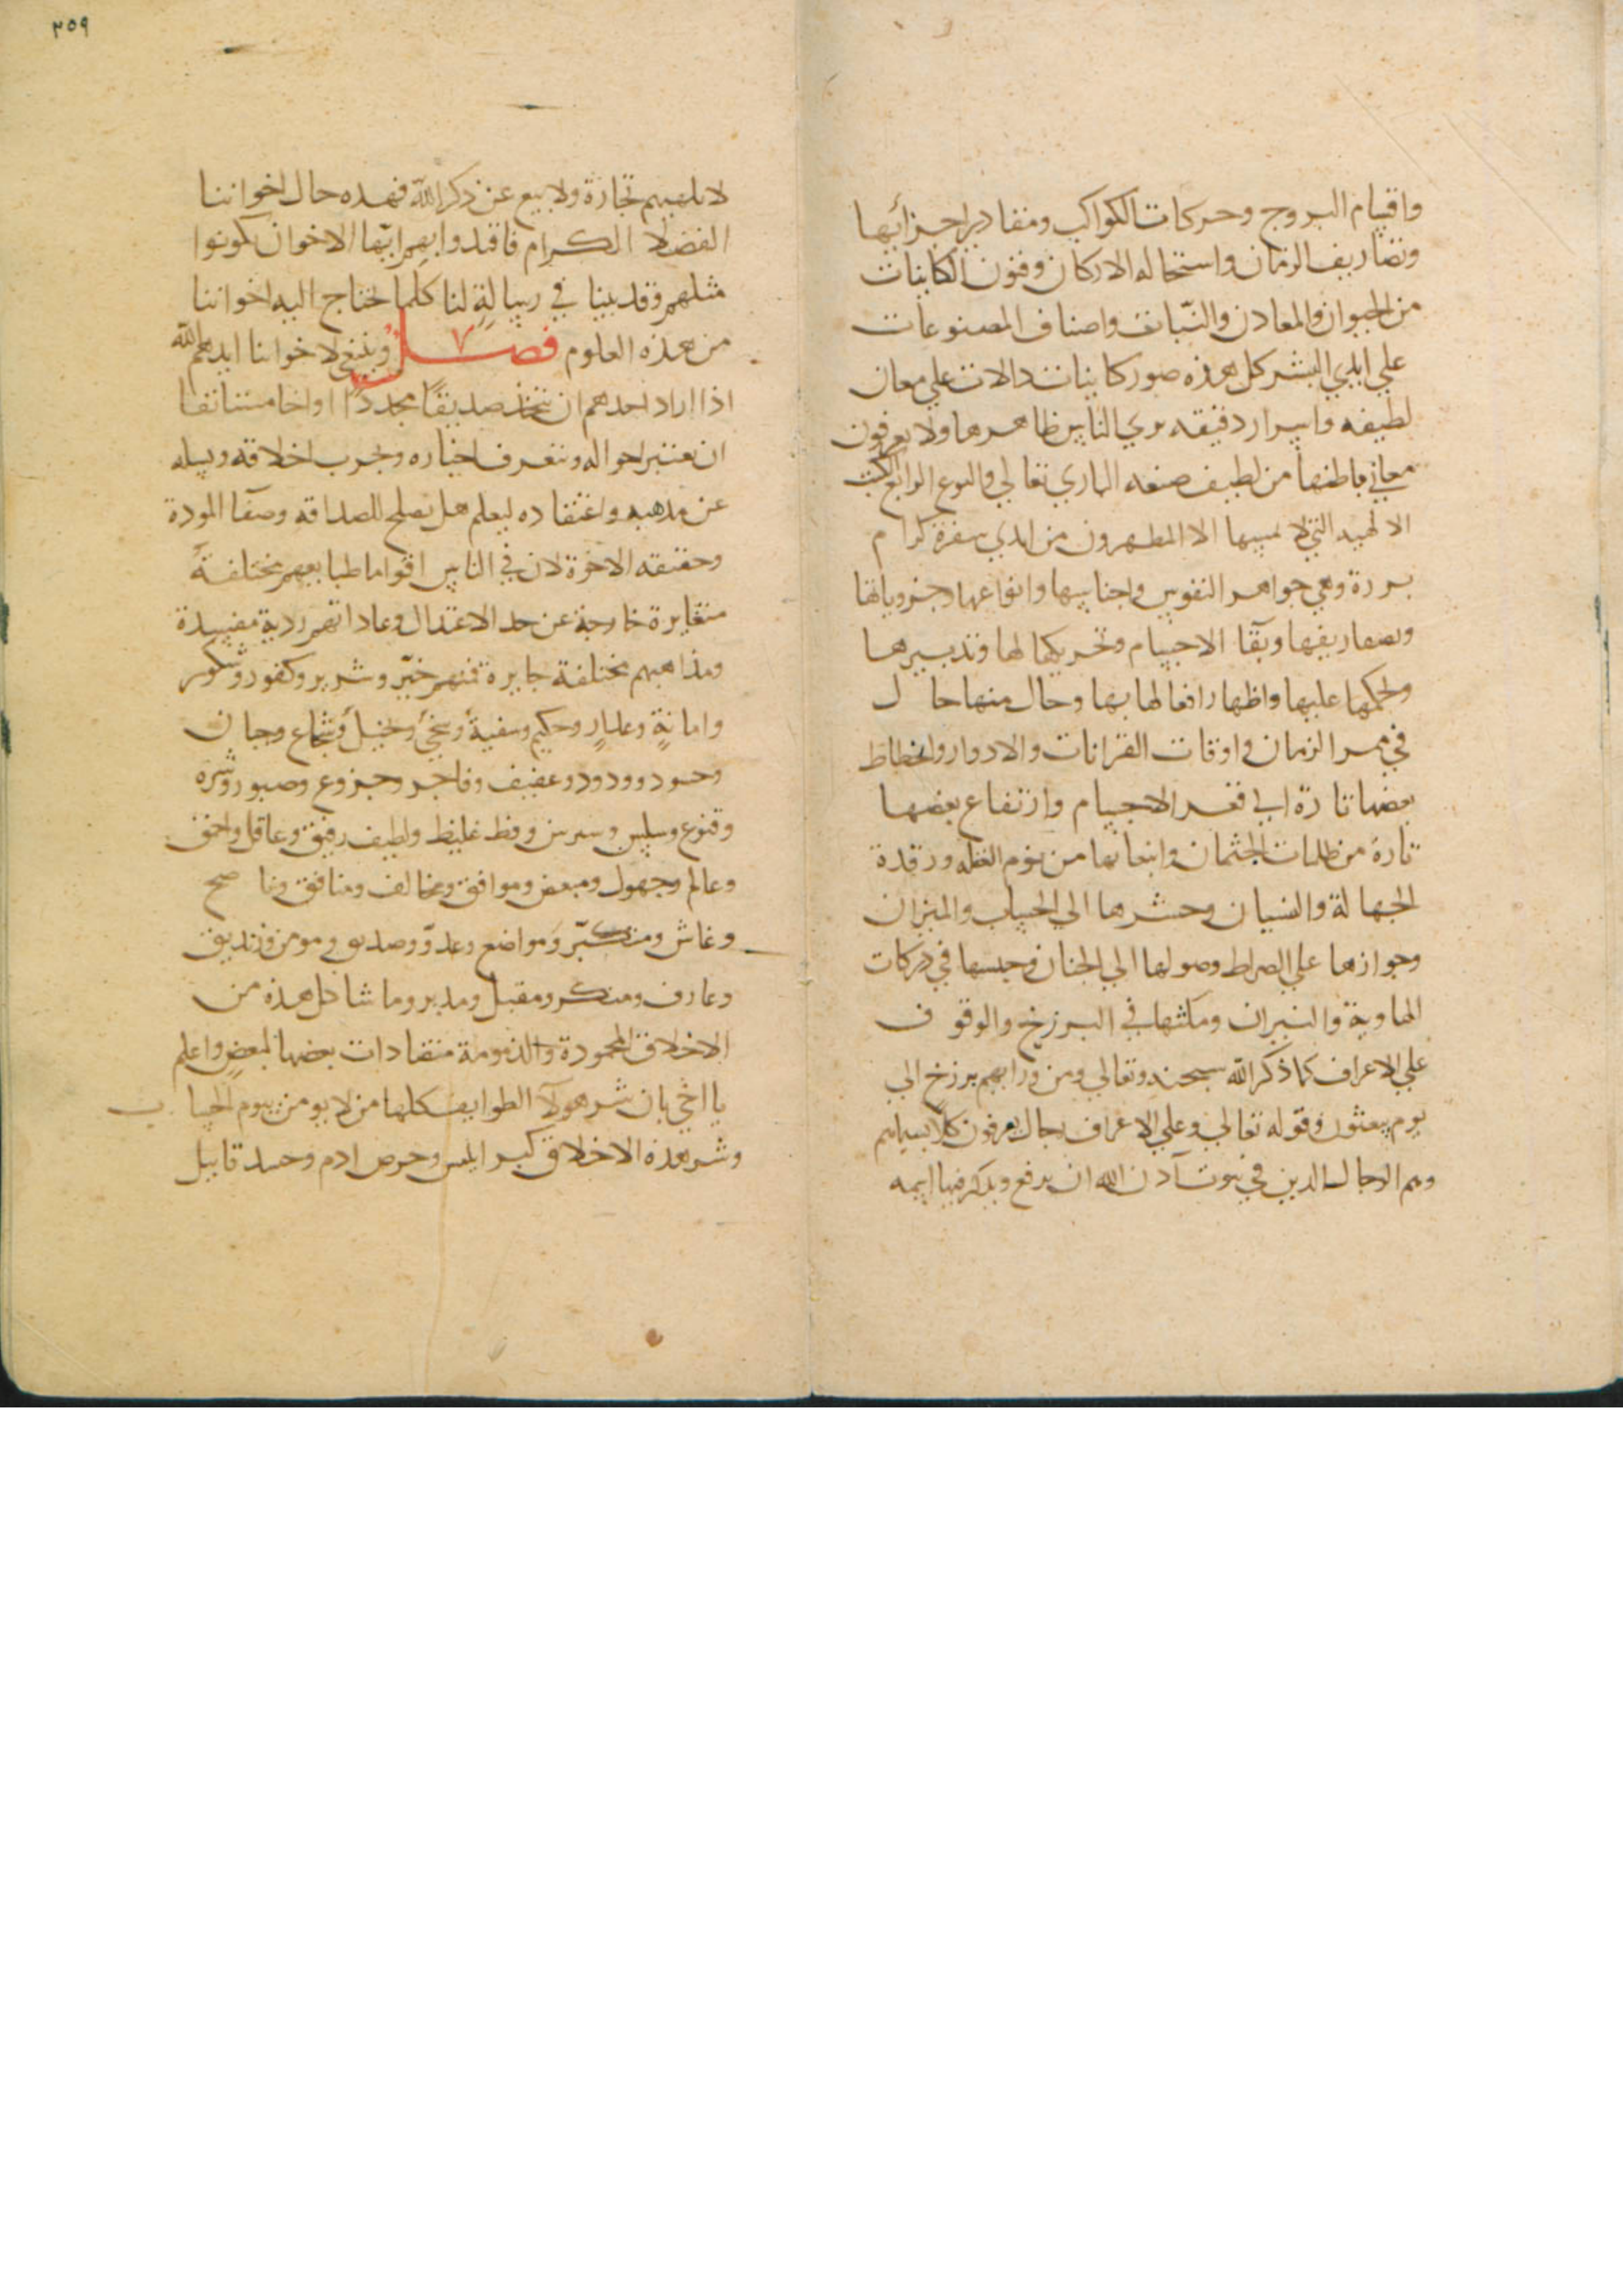 واقسام البروج وحركات الكواكب ومقادير اجزائها
وتصاريف الزمان واستحاله الاركان وفنون الكاينات
من الحيوان والمعادن والنبات واصناف المصنوعات
علي ايدي البشر كل هذه صور كاينات دالات علي معان
لطيفه واسرار دقيقه يري الناس ظاهرها ولا يعرفون
معاني باطنها من لطيف صنعه الباري تعالي والنوع الرابع الكتب
الالهيه التي لا يمسها الا المطهرون من ايدي سفرة كرام
بررة وهي جواهر النفوس واجناسها وانواعها وجزوياتها
وتصاريفها وبقآ الاجسام وتحريكها لها وتدبيرها
وتحكمها عليها واظهار افعالها بها وحال منها حال
في ممر الزمان واوقات القرانات والادوار وانحطاط
بعضها تارة الي قعر الاجسام وارتفاع بعضها
تارة من ظلمات الجثمان وانبعاثها من نوم الغفله ورقدة
الجهالة والنسيان وحشرها الي الحساب والميزان
وجوازها علي الصراط وصولها الي الجنان وحبسها في دركات
الهاوية والنيران ومكثها في البرزخ والوقوف
علي الاعراف كما ذكر الله سبحنه وتعالي ومن ورايهم برزخ الي
يوم يبعثون وقوله تعالي وعلي الاعراف رجال يعرفون كلا بسيماهم
وهم الرجال الذين في بيوت اذن الله ان ترفع ويذكر فيها اسمه
٢٥٩
لا تلهيهم تجارة ولا بيع عن ذكر الله فهذه حال اخواننا
الفضلا الكرام فاقتدوا بهم ايها الاخوان تكونوا
مثلهم وقد بينا في رسالة لنا كلما تحتاج اليه اخواننا
من هذه العلوم فصل ٧ وينبغي لاخواننا ايدهم الله
اذا اراد احدهم ان يتخذ صديقا مجددا او اخا مستانفا
ان يعتبر احواله ويتعرف اخباره ويجرب اخلاقه ويسله
عن مذهبه واعتقاده ليعلم هل يصلح للصداقه وصفآ المودة
وحقيقه الاخوة لان في الناس اقواما طبايعهم مختلفة
متغايرة خارجة عن حد الاعتدال وعاداتهم ردية مفسدة
ومذاهبهم مختلفة جايرة فمنهم خير وشرير وكفور وشكور
وامانة وغدار وحكيم وسفية وسخي وبخيل وشجاع وجبان
وحسود وودود وعفيف وفاجر وجزوع وصبور وشره
وقنوع وسلس وشرس وفظ غليظ ولطيف رفيق وعاقل واحمق
وعالم وجهول ومبغض وموافق ومخالف ومنافق وناصح
وغاش ومتكبر ومواضع وعدو وصديق ومومن وزنديق
وعارف ومنكر ومقبل ومدبر وما شاكل هذه من
الاخلاق المحمودة والذمومة متضادات بعضها لبعض واعلم
يا اخي بان شر هولآ الطوايف كلها من لا يومن بيوم الحساب
وشر هذه الاخلاق كبر ابليس وحرص ادم وحسد قابيل